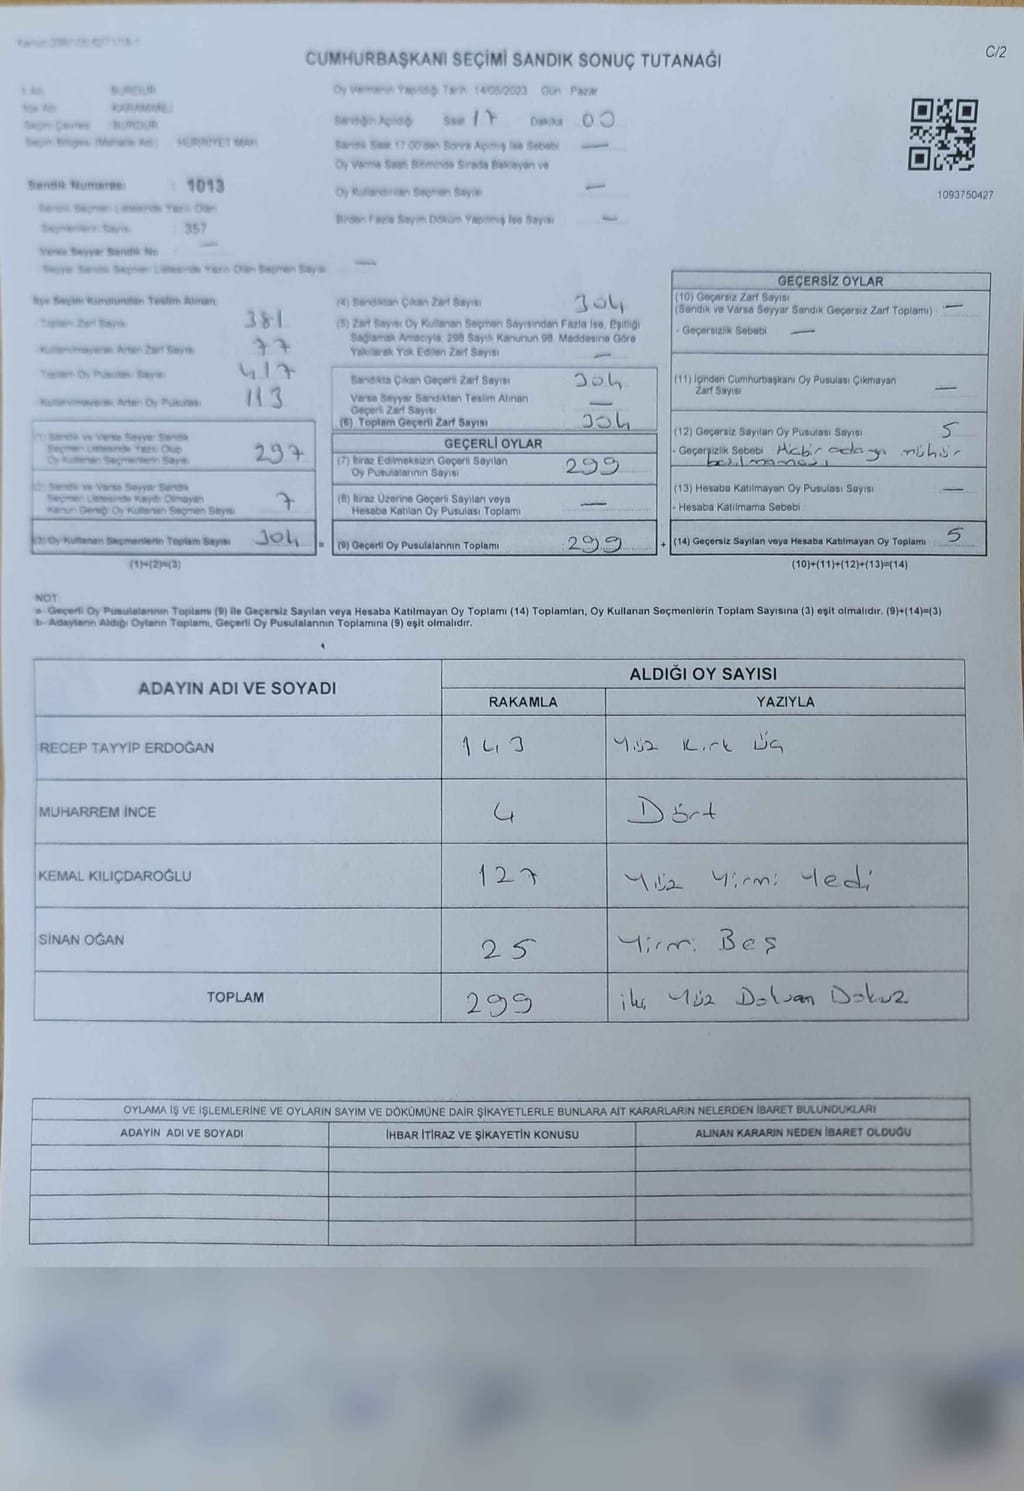 C/2
CUMHURBAŞKANI SEÇİMİ SANDIK SONUÇ TUTANAĞI
İl Adı BURDUR
İlçe Adı KARAMANLI
Seçim Çevresi BURDUR
Seçim Bölgesi (Mahalle Adı) HÜRRİYET MAH.
Oy Vermenin Yapıldığı Tarih 14/05/2023 Gün Pazar
Sandığın Açıldığı Saat 17 Dakika 00
Sandık Saat 17.00'den Sonra Açılmış İse Sebebi —
Oy Verme Saati Bitiminde Sırada Bekleyen ve
Oy Kullandırılan Seçmen Sayısı —
Birden Fazla Sayım Döküm Yapılmış İse Sayısı —
1093750427
Sandık Numarası : 1013
Sandık Seçmen Listesinde Yazılı Olan
Seçmenlerin Sayısı : 357
Varsa Seyyar Sandık No —
Seyyar Sandık Seçmen Listesinde Yazılı Olan Seçmen Sayısı —
İlçe Seçim Kurulundan Teslim Alınan
Toplam Zarf Sayısı 381
Kullanılmayarak Artan Zarf Sayısı 77
Toplam Oy Pusulası Sayısı 417
Kullanılmayarak Artan Oy Pusulası 113
(1) Sandık ve Varsa Seyyar Sandık
Seçmen Listesinde Yazılı Olup
Oy Kullanan Seçmenlerin Sayısı 297
(2) Sandık ve Varsa Seyyar Sandık
Seçmen Listesinde Kayıtlı Olmayan
Kanun Gereği Oy Kullanan Seçmen Sayısı 7
(3) Oy Kullanan Seçmenlerin Toplam Sayısı 304 =
(1)+(2)=(3)
(4) Sandıktan Çıkan Zarf Sayısı 304
(5) Zarf Sayısı Oy Kullanan Seçmen Sayısından Fazla İse, Eşitliği
Sağlamak Amacıyla, 298 Sayılı Kanunun 98. Maddesine Göre
Yakılarak Yok Edilen Zarf Sayısı —
Sandıkta Çıkan Geçerli Zarf Sayısı 304
Varsa Seyyar Sandıktan Teslim Alınan
Geçerli Zarf Sayısı —
(6) Toplam Geçerli Zarf Sayısı 304
GEÇERLİ OYLAR
(7) İtiraz Edilmeksizin Geçerli Sayılan
Oy Pusulalarının Sayısı 299
(8) İtiraz Üzerine Geçerli Sayılan veya
Hesaba Katılan Oy Pusulası Toplamı —
(9) Geçerli Oy Pusulalarının Toplamı 299 +
GEÇERSİZ OYLAR
(10) Geçersiz Zarf Sayısı
(Sandık ve Varsa Seyyar Sandık Geçersiz Zarf Toplamı) —
- Geçersizlik Sebebi —
(11) İçinden Cumhurbaşkanı Oy Pusulası Çıkmayan
Zarf Sayısı —
(12) Geçersiz Sayılan Oy Pusulası Sayısı 5
- Geçersizlik Sebebi Hiçbir adaya mühür
basılmaması
(13) Hesaba Katılmayan Oy Pusulası Sayısı —
- Hesaba Katılmama Sebebi :
(14) Geçersiz Sayılan veya Hesaba Katılmayan Oy Toplamı 5
(10)+(11)+(12)+(13)=(14)
NOT:
a- Geçerli Oy Pusulalarının Toplamı (9) ile Geçersiz Sayılan veya Hesaba Katılmayan Oy Toplamı (14) Toplamları, Oy Kullanan Seçmenlerin Toplam Sayısına (3) eşit olmalıdır. (9)+(14)=(3)
b- Adayların Aldığı Oyların Toplamı, Geçerli Oy Pusulalarının Toplamına (9) eşit olmalıdır.
ADAYIN ADI VE SOYADI ALDIĞI OY SAYISI
RAKAMLA YAZIYLA
RECEP TAYYİP ERDOĞAN 143 Yüz Kırk Üç
MUHARREM İNCE 4 Dört
KEMAL KILIÇDAROĞLU 127 Yüz Yirmi Yedi
SİNAN OĞAN 25 Yirmi Beş
TOPLAM 299 iki Yüz Doksan Dokuz
OYLAMA İŞ VE İŞLEMLERİNE VE OYLARIN SAYIM VE DÖKÜMÜNE DAİR ŞİKAYETLERLE BUNLARA AİT KARARLARIN NELERDEN İBARET BULUNDUKLARI
ADAYIN ADI VE SOYADI İHBAR İTİRAZ VE ŞİKAYETİN KONUSU ALINAN KARARIN NEDEN İBARET OLDUĞU